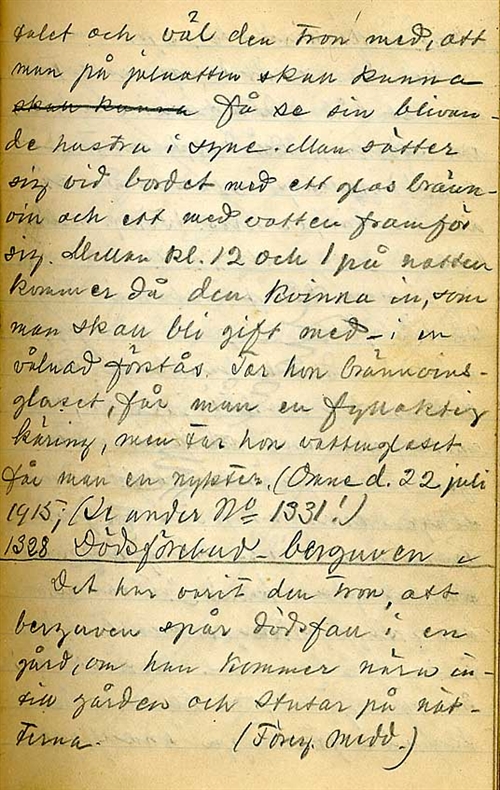 talet och väl den tron med, att
man på julnatten skall kunna
skall kunna få se sin blivan-
de hustru i syne. Man sätter
sig vid bordet med ett glas bränn-
vin och ett med vatten framför
sig. Mellan kl. 12 och 1 på natten
kommer då den kvinna in, som
man skall bli gift med - i en
vålnad förstås. Tar hon brännvins-
glaset, får man en fyllaktig
käring, men tar hon vattenglaset
får man en nykter. (Omne d. 22 juli
1915; (Se under No 1331!)
1328 Dödsförebud - berguven
Det har varit den tron, att
berguven spår dödsfall i en
gård, om han kommer nära in-
till gården och stutar på nät-
terna. (Föreg. medd.)